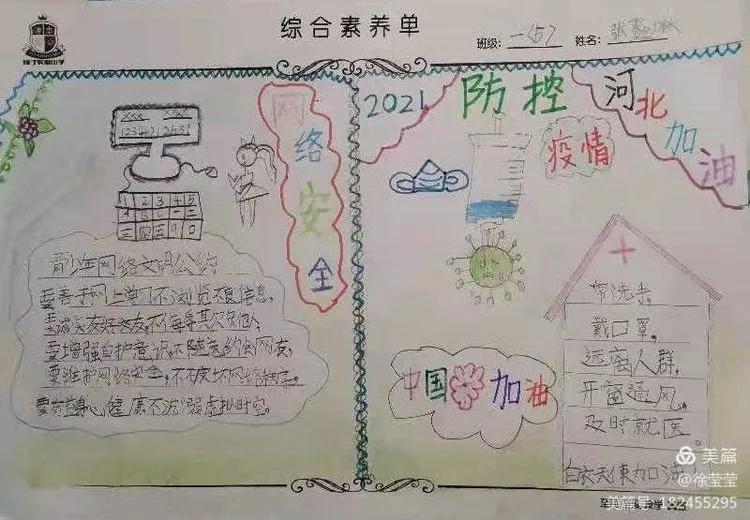 综合素养单
班级:一(5)
姓名:
网络安全
1 2 3 4 5
青少年网络文明公约
要善于网上学习不浏览不良信息,
要诚实友好交友,不侮辱欺诈他人,
要增强自护意识不随意约会网友,
要维护网络安全,不破坏网络秩序。
要有益身心健康不沉溺虚拟时空。
2021 防控
疫情
河北加油
中国加油
常洗手,
戴口罩,
远离人群,
开窗通风,
及时就医。
白衣天使加油
美篇
@徐莹莹
美篇号:182455295